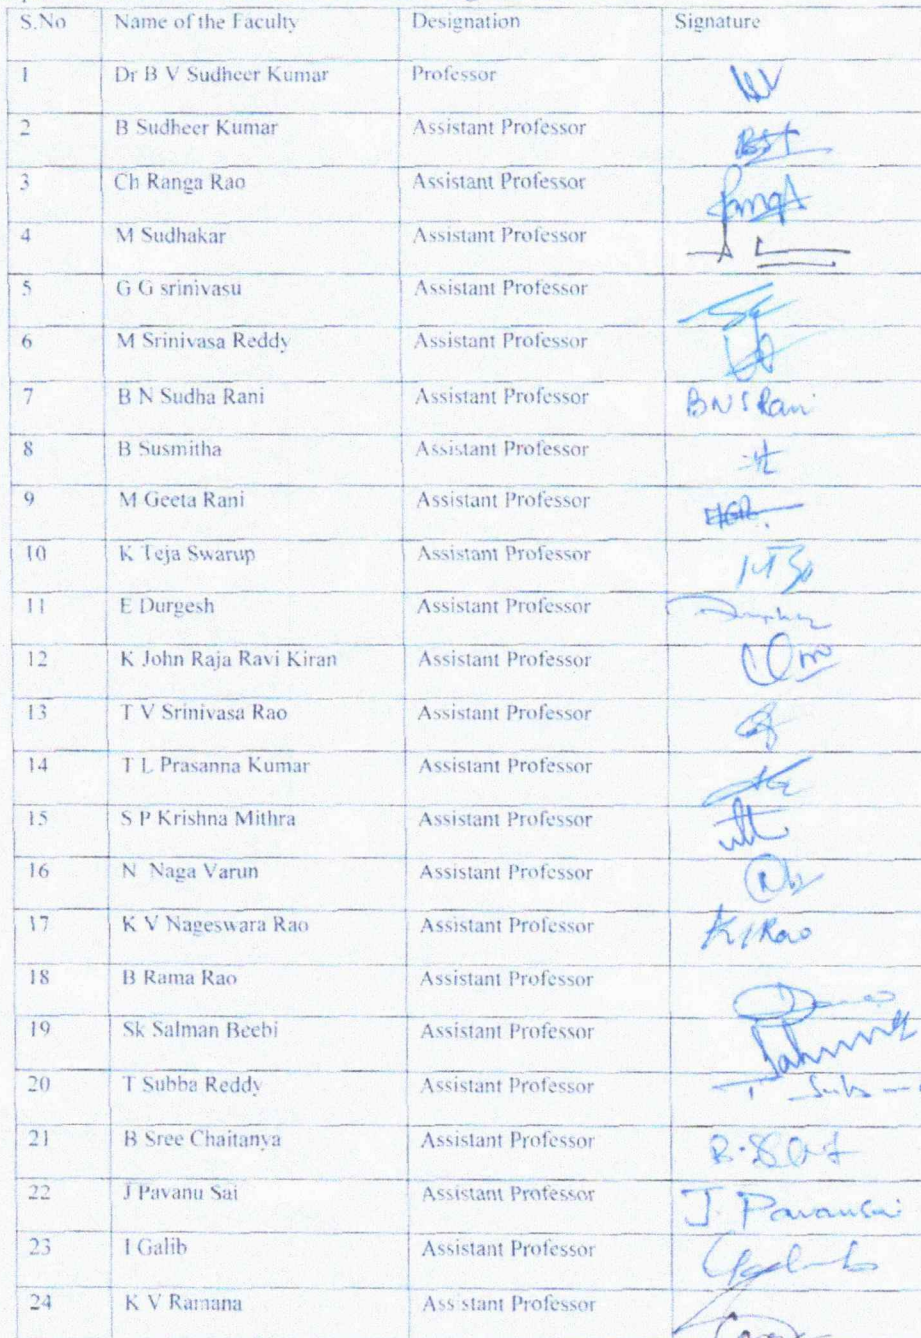 S.No Name of the Faculty Designation Signature
1 Dr B V Sudheer Kumar Professor
2 B Sudheer Kumar Assistant Professor
3 Ch Ranga Rao Assistant Professor
4 M Sudhakar Assistant Professor
5 G G srinivasu Assistant Professor
6 M Srinivasa Reddy Assistant Professor
7 B N Sudha Rani Assistant Professor BNS Rani
8 B Susmitha Assistant Professor
9 M Geeta Rani Assistant Professor
10 K Teja Swarup Assistant Professor
11 E Durgesh Assistant Professor
12 K John Raja Ravi Kiran Assistant Professor
13 T V Srinivasa Rao Assistant Professor
14 T L Prasanna Kumar Assistant Professor
15 S P Krishna Mithra Assistant Professor
16 N Naga Varun Assistant Professor
17 K V Nageswara Rao Assistant Professor KVRao
18 B Rama Rao Assistant Professor
19 Sk Salman Beebi Assistant Professor
20 T Subba Reddy Assistant Professor
21 B Sree Chaitanya Assistant Professor
22 J Pavanu Sai Assistant Professor J. Pavansai
23 I Galib Assistant Professor
24 K V Ramana Assistant Professor